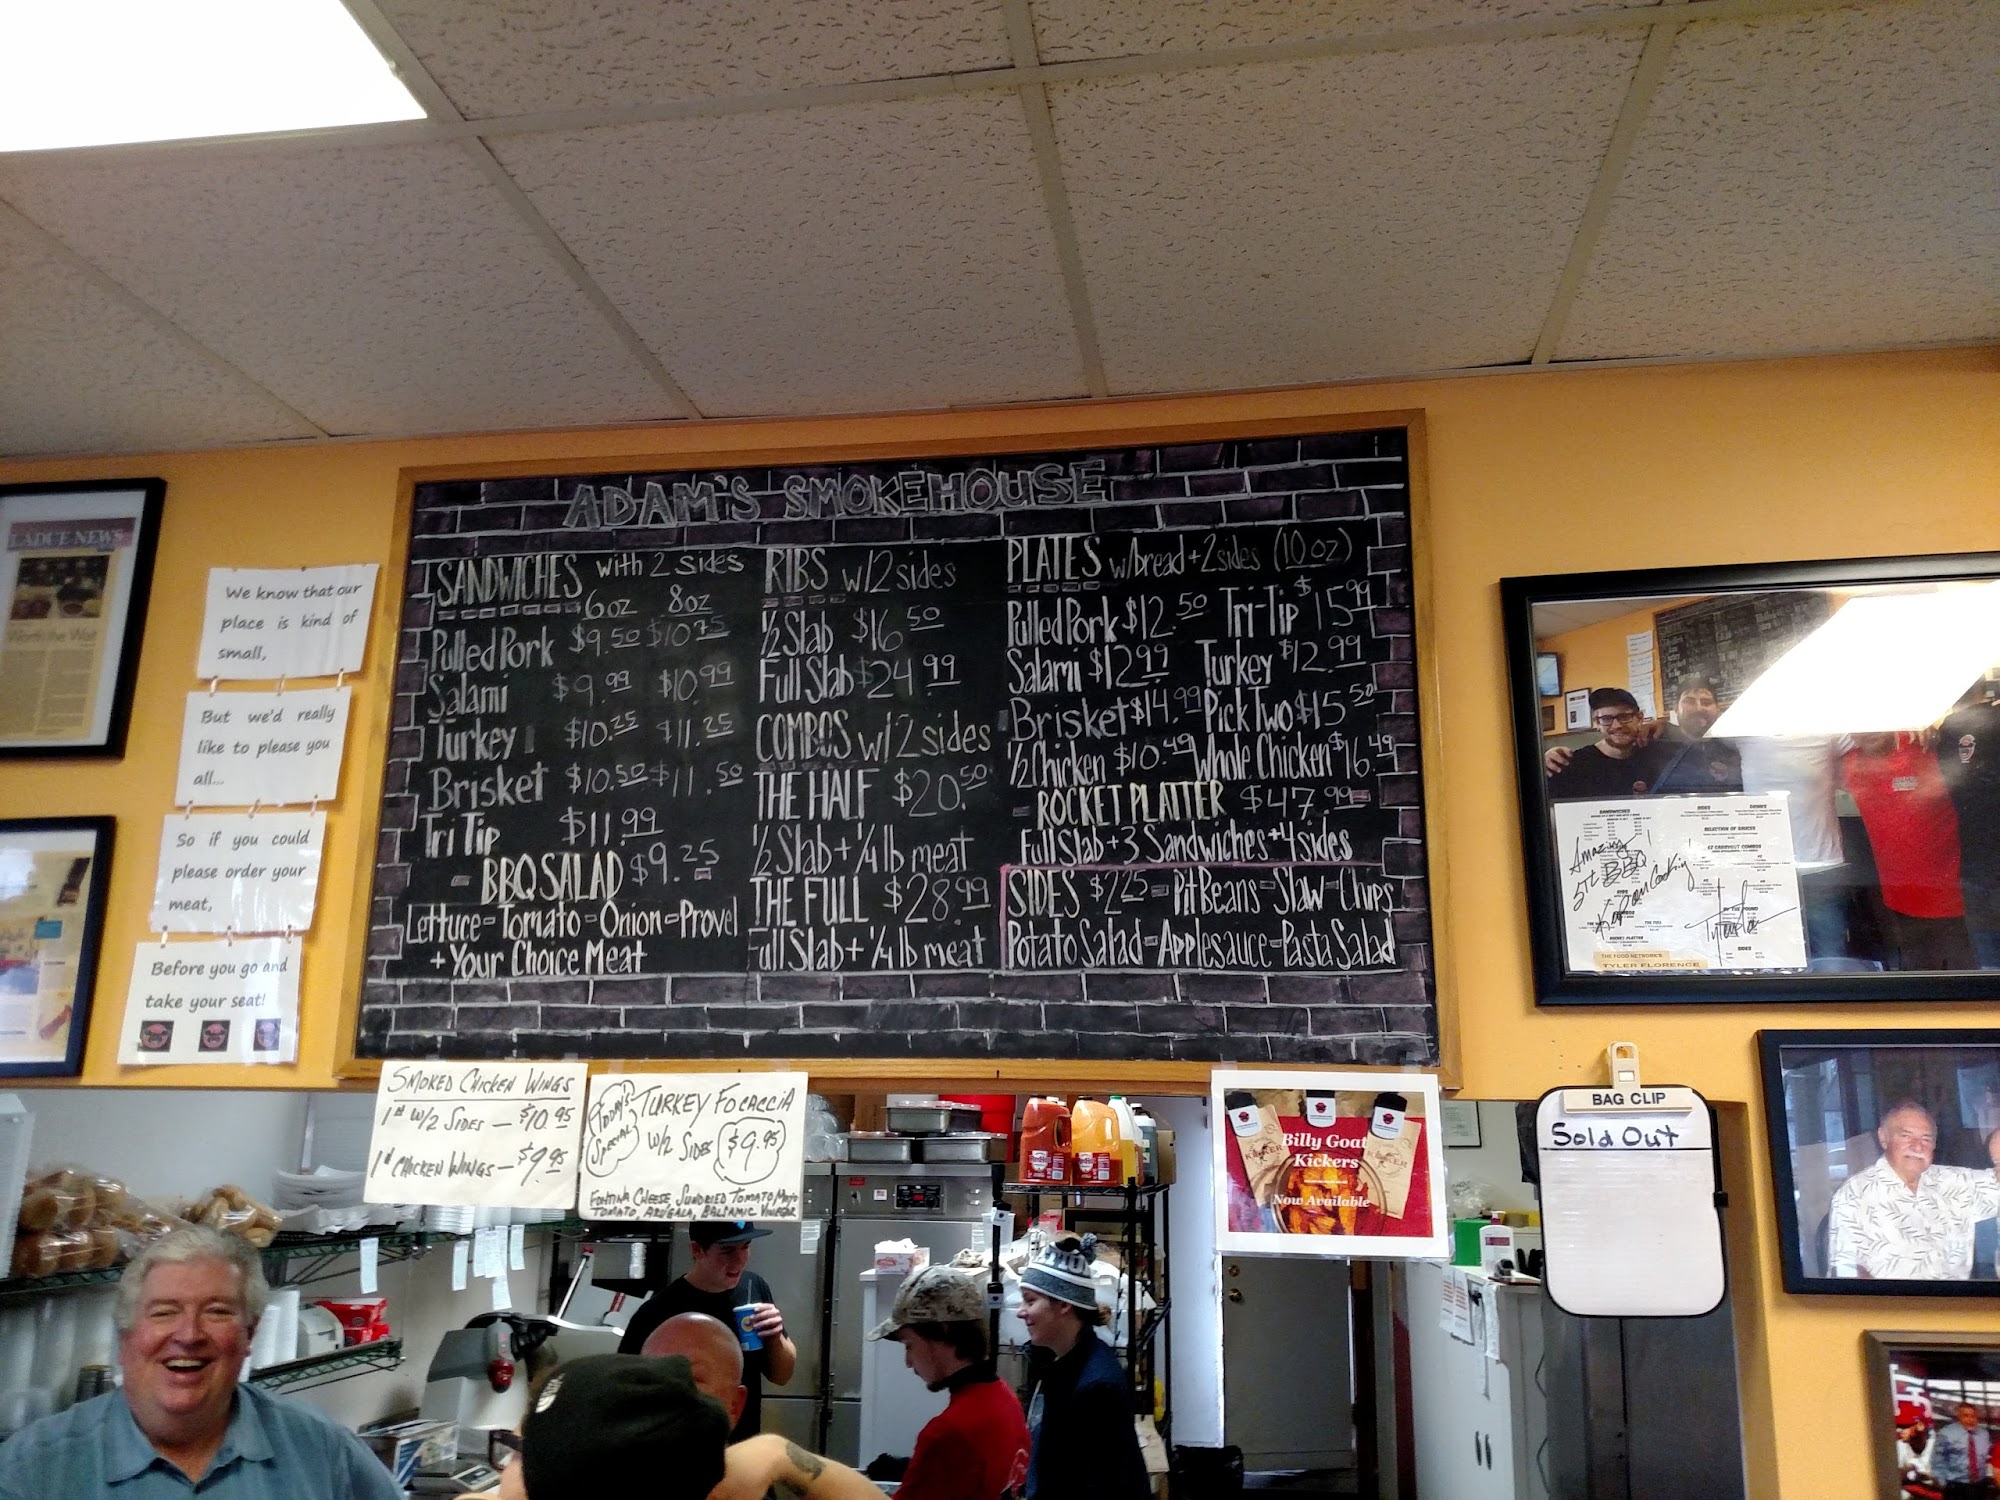 LADUE NEWS
Worth the Wait
We know that our
place is kind of
small,
But we'd really
like to please you
all...
So if you could
please order your
meat,
Before you go and
take your seat!
ADAM'S SMOKEHOUSE
SANDWICHES with 2 sides
6oz 8oz
Pulled Pork $9.50 $10.75
Salami $9.99 $10.99
Turkey $10.25 $11.25
Brisket $10.50 $11.50
Tri Tip $11.99
- BBQ SALAD $9.25 -
Lettuce-Tomato-Onion-Provel
+ Your Choice Meat
RIBS w/2 sides
1/2 Slab $16.50
Full Slab $24.99
COMBOS w/2 sides
THE HALF $20.50
1/2 Slab + 1/4 lb meat
THE FULL $28.99
Full Slab + 1/4 lb meat
PLATES w/bread + 2 sides (10 oz)
Pulled Pork $12.50 Tri-Tip $15.99
Salami $12.99 Turkey $12.99
Brisket $14.99 Pick Two $15.50
1/2 Chicken $10.49 Whole Chicken $16.49
- ROCKET PLATTER $47.99 -
Full Slab + 3 Sandwiches + 4 sides
SIDES $2.25 - Pit Beans - Slaw - Chips
Potato Salad - Applesauce - Pasta Salad
SMOKED CHICKEN WINGS
1# W/2 SIDES - $10.95
1# CHICKEN WINGS - $9.95
TODAY'S
SPECIAL
TURKEY FOCACCIA
W/2 SIDES $9.95
FONTINA CHEESE SUNDRIED TOMATO MAYO
TOMATO, ARUGALA, BALSAMIC VINEGAR
Billy Goat
Kickers
Now Available
KICKER
BAG CLIP
Sold Out
SANDWICHES
SIDES
DRINKS
SELECTION OF SAUCES
Amazing!
STL BBQ!
Keep on Cooking!
THE FOOD NETWORK'S
TYLER FLORENCE